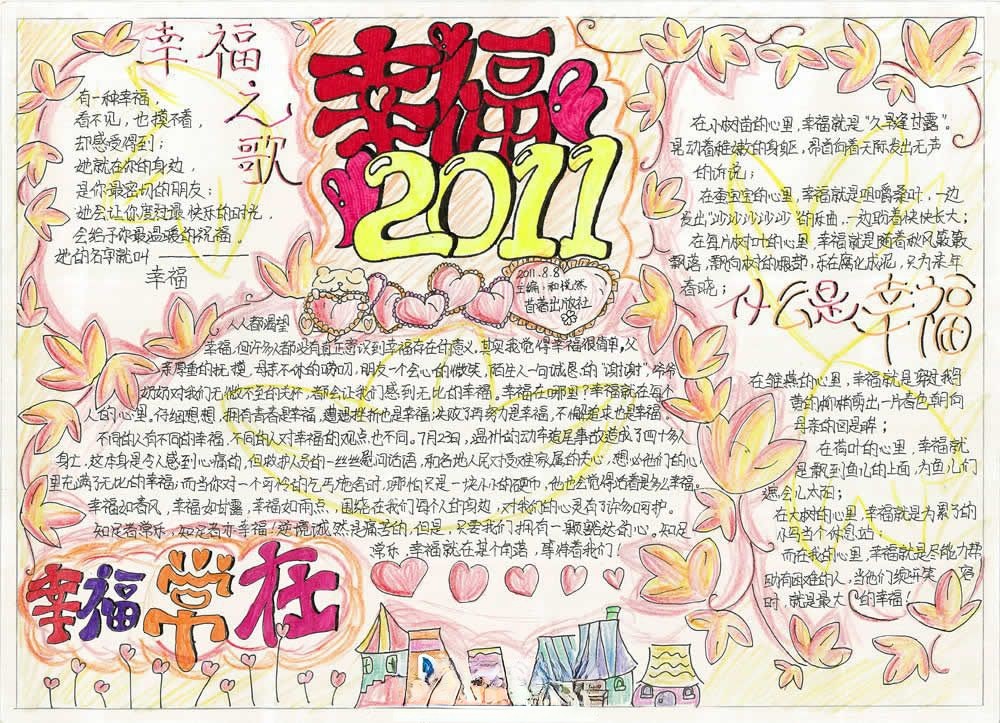 幸福之歌
有一种幸福，
看不见，也摸不着，
却感受得到；
她就在你的身边，
是你最密切的朋友；
她会让你度过最快乐的时光，
会给予你最温暖的祝福。
她的名字就叫
幸福
幸福
2011
2011.8.8
主编：和悦然
首著出版社
人人都渴望
幸福，但许多人都没有真正意识到幸福存在的意义。其实我觉得幸福很简单。父
亲厚重的抚摸，母亲不休的唠叨，朋友一个会心的微笑，陌生人一句诚恳的“谢谢”，爷爷
奶奶对我们无微不至的关怀，都会让我们感到无比的幸福。幸福在哪里？幸福就在每个
人的心里。仔细想想，拥有青春是幸福，遭遇挫折也是幸福，失败了再努力是幸福，不懈追求也是幸福。
不同的人有不同的幸福，不同的人对幸福的观点也不同。7月23日，温州的动车追尾事故造成了四十多人
身亡，这本身是令人感到心痛的，但救护人员的一丝丝慰问话语，和各地人民对受难家属的关心，想必他们的心
里在满了无比的幸福；而当你对一个可怜的乞丐施舍时，哪怕只是一块小小的硬币，他也会觉得活着是多么幸福。
幸福如春风，幸福如甘露，幸福如雨点，围绕在我们每个人的身边，对我们的心灵有许多呵护。
知足者常乐，知足者亦幸福！悲惋诚然是痛苦的，但是，只要我们拥有一颗豁达的心。知足
常乐，幸福就在某个角落，等待着我们！
幸福常在
在小树苗的心里，幸福就是“久旱逢甘露”。
晃动着稚嫩的身躯，昂首向着天际发出无声
的诉说；
在蚕宝宝的心里，幸福就是咀嚼桑叶，一边
发出“沙沙沙沙沙”的乐曲，一边盼着快快长大；
在每片树叶的心里，幸福就是随着秋风簌簌
飘落，飘向树的根部，乐在腐化成泥，只为来年
春晓；
什么是幸福
在雏燕的心里，幸福就是穿过鹅
黄的柳梢剪出一片春色朝向
母亲的回归；
在荷叶的心里，幸福就
是飘到鱼儿的上面，为鱼儿们
遮会儿太阳；
在大树的心里，幸福就是为累了的
小鸟当个休息站；
而在我的心里，幸福就是尽能力帮
助有困难的人，当他们绽开笑容
时，就是最大的幸福！